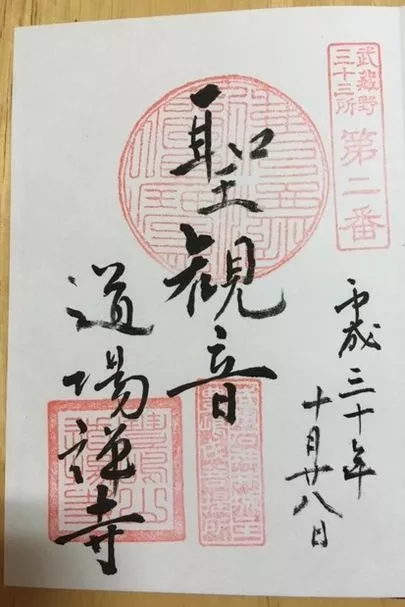 武蔵野
三十三所
第二番
平成三十年
十月廿八日
聖観音
道場禅寺